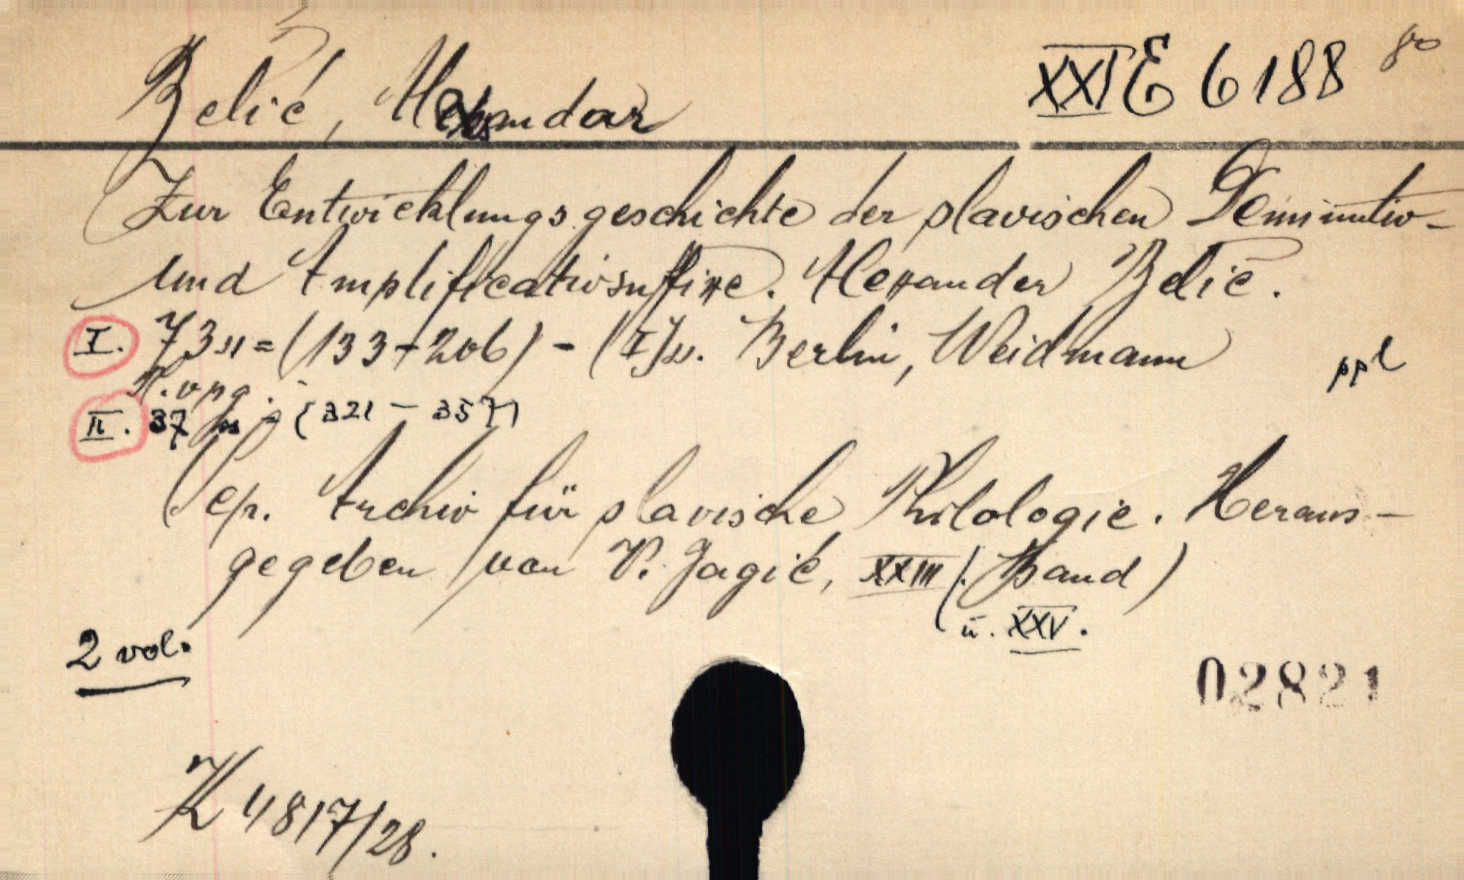 Belić, Aleksandar
XXI E 6188 8o
Zur Entwicklungsgeschichte der slavischen Deminutiv-
und Amplificativsuffixe. Alexander Belić.
I. 73 = (133+206) - (I) Berlin, Weidmann
ppl
II. 37 = (321 - 357)
Sep. Archiv für slavische Philologie. Heraus-
gegeben von V. Jagić, XXIII (. Band)
u. XXV.
2 vol.
02821
K 4817/28.